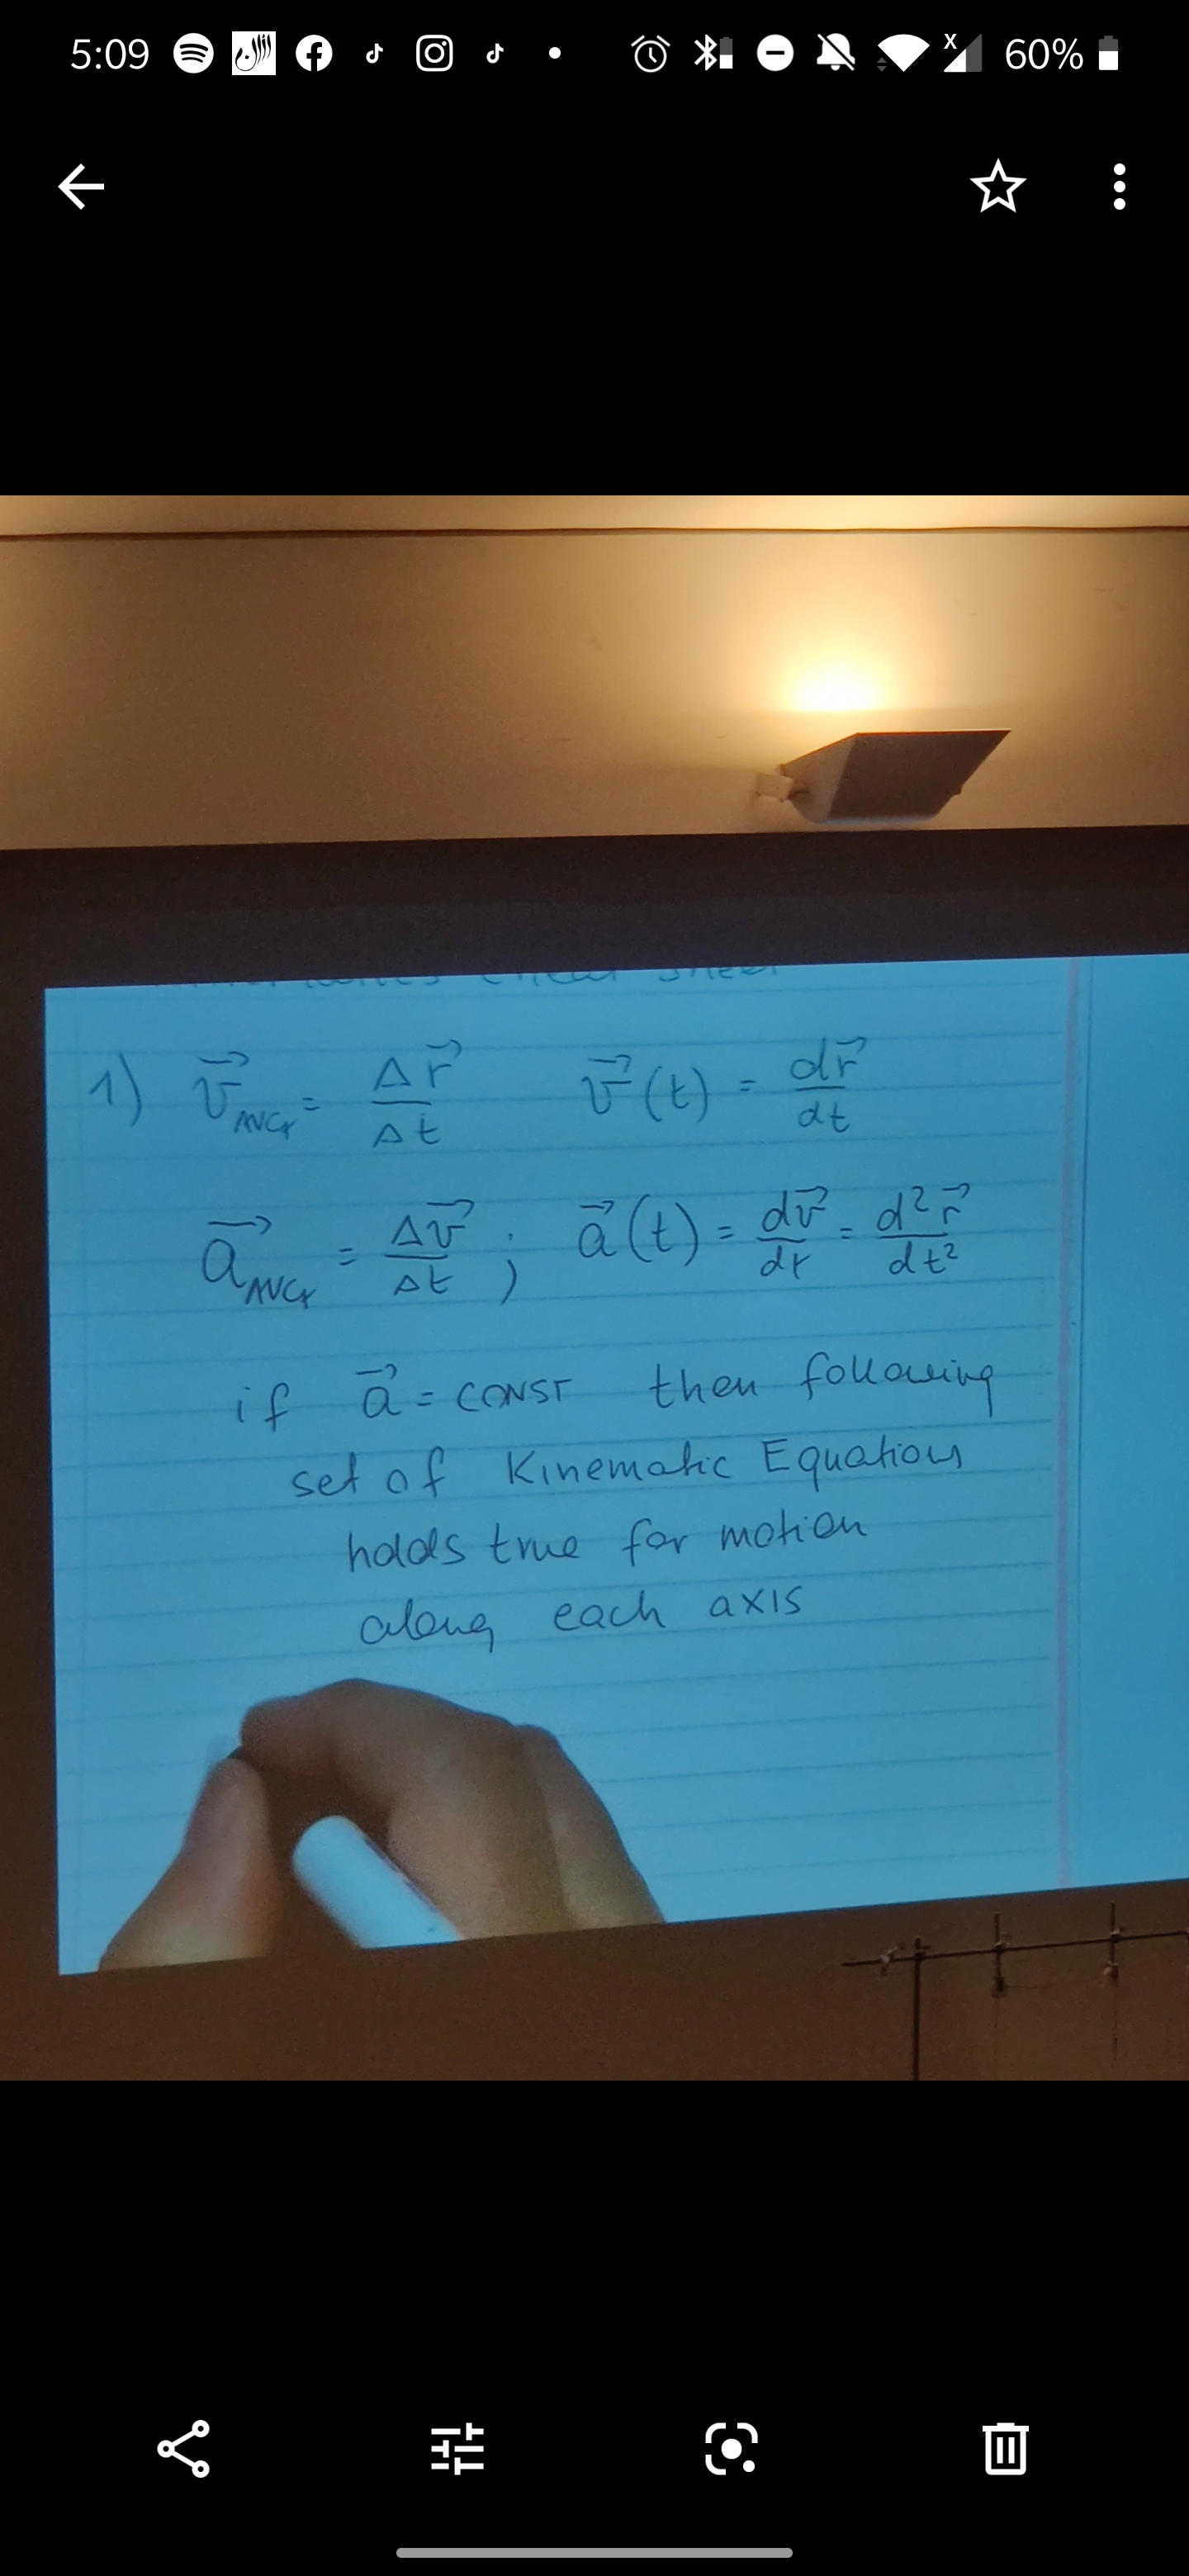 5:09
60%
1) v⃗AVG = Δr⃗/Δt v⃗(t) = dr⃗/dt
a⃗AVG = Δv⃗/Δt ; a⃗(t) = dv⃗/dt = d²r⃗/dt²
if a⃗ = CONST then following
set of Kinematic Equations
holds true for motion
along each axis